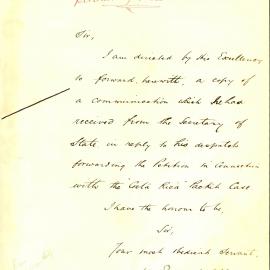 Sir,
I am directed by His Excellency
to forward herewith, a copy of
a communication which he has
received from the Secretary of
State in reply to his despatch
forwarding the Petition in connection
with the "Costa Rica" Packet Case
I have the honour to be,
Sir,
Your most obedient Servant,